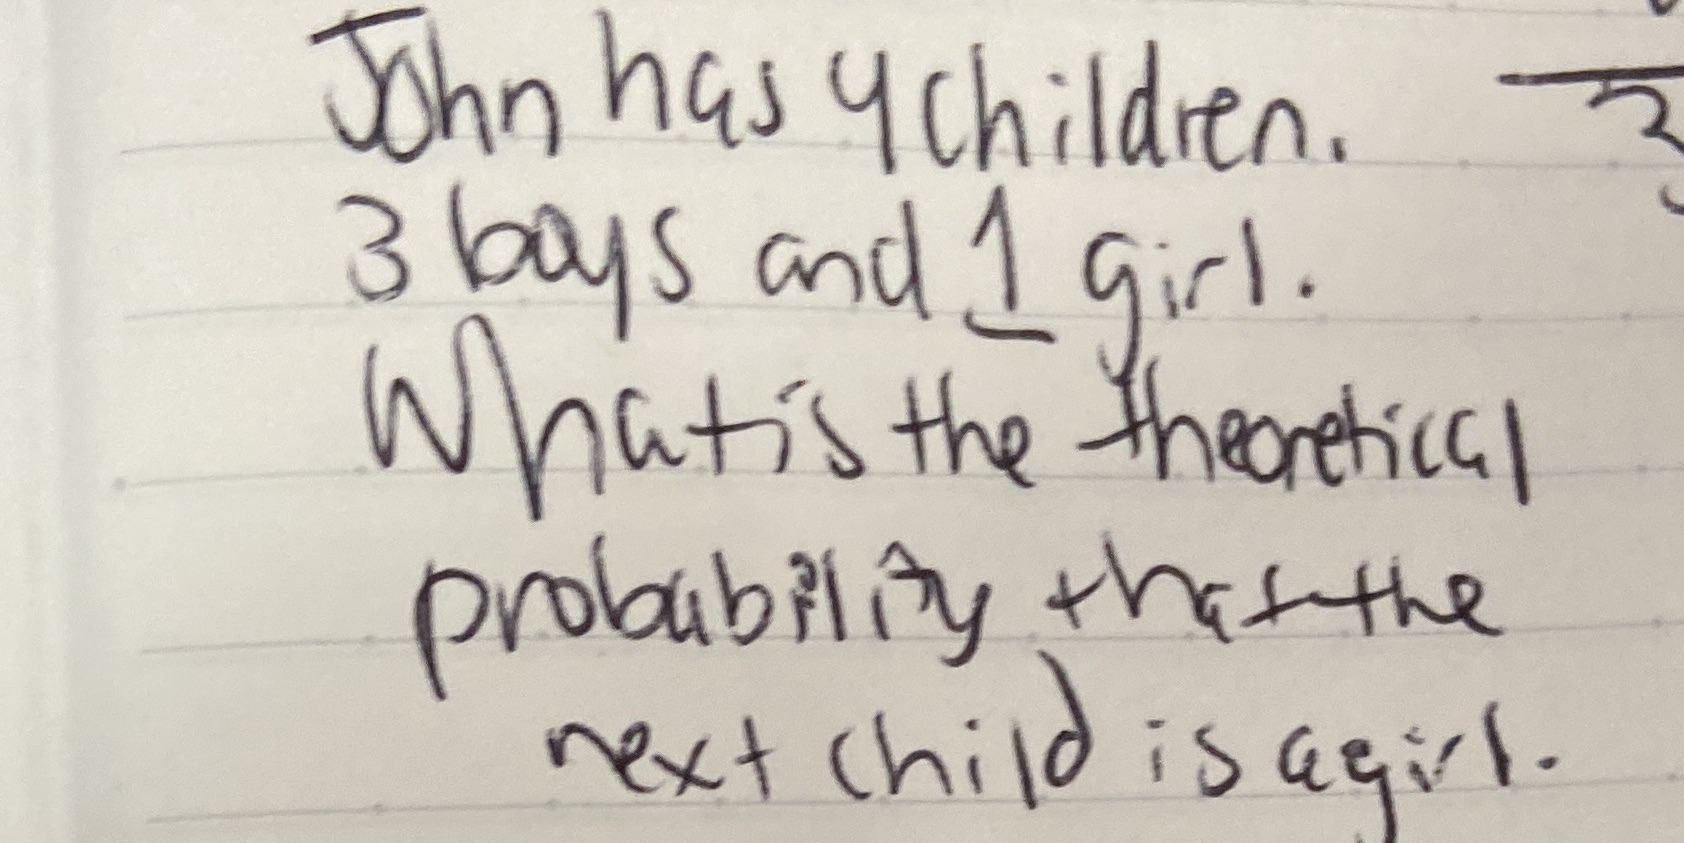 John has 4 children.
3 boys and 1 girl.
What is the theoretical
probability that the
next child is a girl.